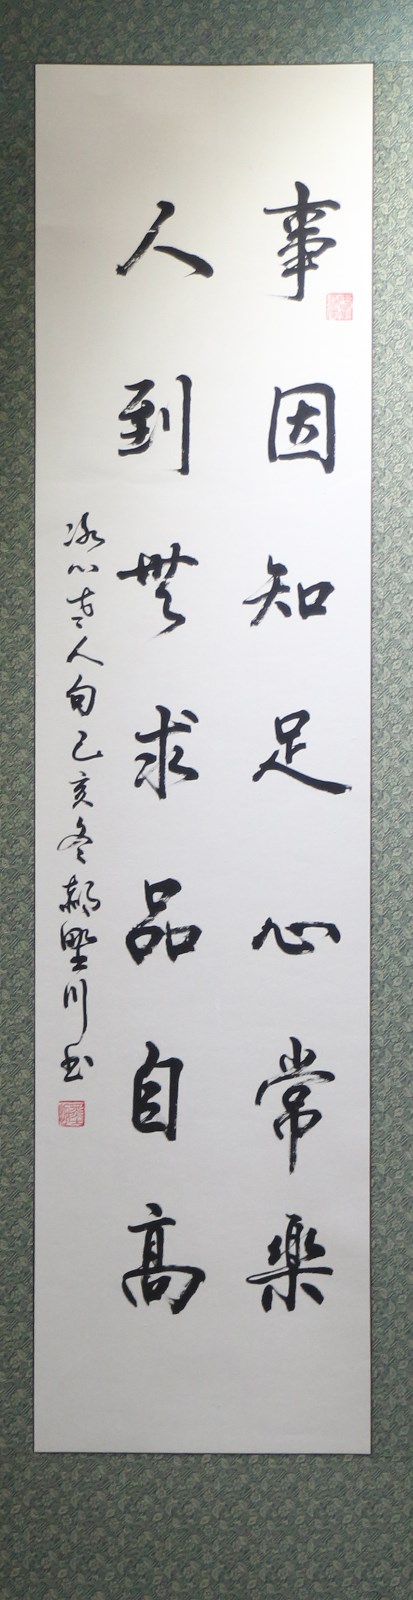 事因知足心常樂
人到無求品自高
冰心老人句己亥冬郝野川书